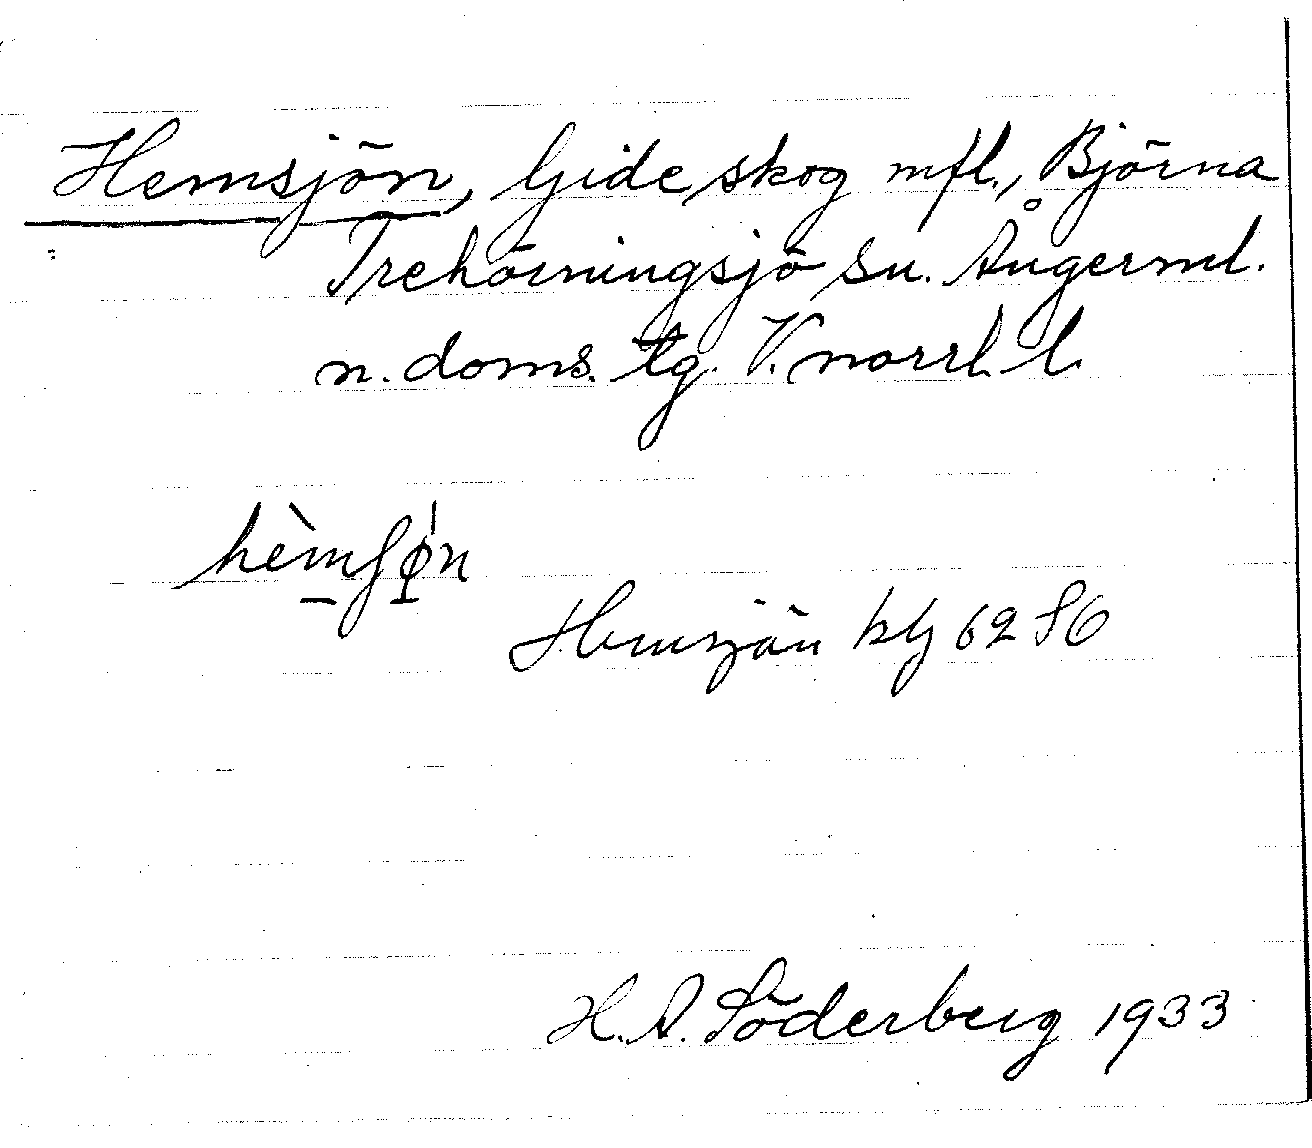 Hemsjön, Gideskog mfl., Björna
Trehörningsjö sn. Ångerml.
n. doms. tg. V. norrl. l.
hèmʃø̀n
Hemsjön kbl 62 SO
H. A. Söderberg 1933